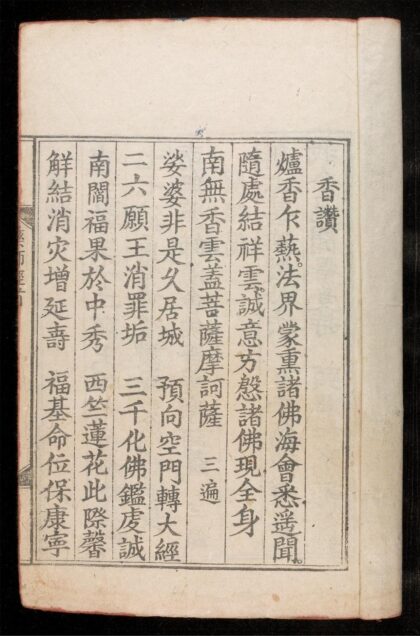 香讚
爐香乍爇。法界蒙熏諸佛海會悉遥聞。
隨處結祥雲。誠意方慇諸佛現全身
南無香雲蓋菩薩摩訶薩 三遍
娑婆非是久居城 預向空門轉大經
二六願王消罪垢 三千化佛鑑虔誠
南閻福果於中秀 西竺蓮花此際馨
解結消灾增延壽 福基命位保康寧